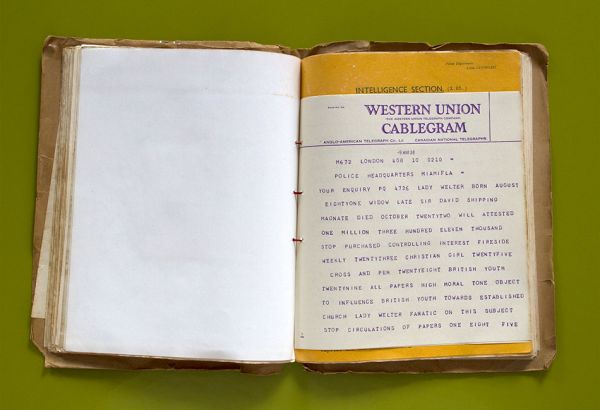 Police Department
INTELLIGENCE SECTION.
WESTERN UNION
THE WESTERN UNION TELEGRAPH COMPANY
CABLEGRAM
ANGLO-AMERICAN TELEGRAPH Co. Ld CANADIAN NATIONAL TELEGRAPHS
M672 LONDON 408 10 0210 =
POLICE HEADQUARTERS MIAMIFLA =
YOUR ENQUIRY PQ 4726 LADY WELTER BORN AUGUST
EIGHTYONE WIDOW LATE SIR DAVID SHIPPING
MAGNATE DIED OCTOBER TWENTYTWO WILL ATTESTED
ONE MILLION THREE HUNDRED ELEVEN THOUSAND
STOP PURCHASED CONTROLLING INTEREST FIRESIDE
WEEKLY TWENTYTHREE CHRISTIAN GIRL TWENTYFIVE
CROSS AND PEN TWENTYEIGHT BRITISH YOUTH
TWENTYNINE ALL PAPERS HIGH MORAL TONE OBJECT
TO INFLUENCE BRITISH YOUTH TOWARDS ESTABLISHED
CHURCH LADY WELTER FANATIC ON THIS SUBJECT
STOP CIRCULATIONS OF PAPERS ONE EIGHT FIVE